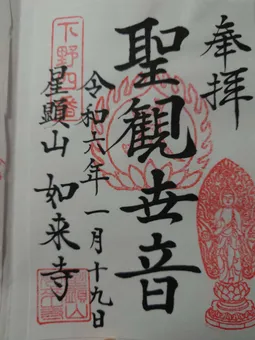 奉拝
聖観世音
令和六年一月十九日
星顕山 如来寺